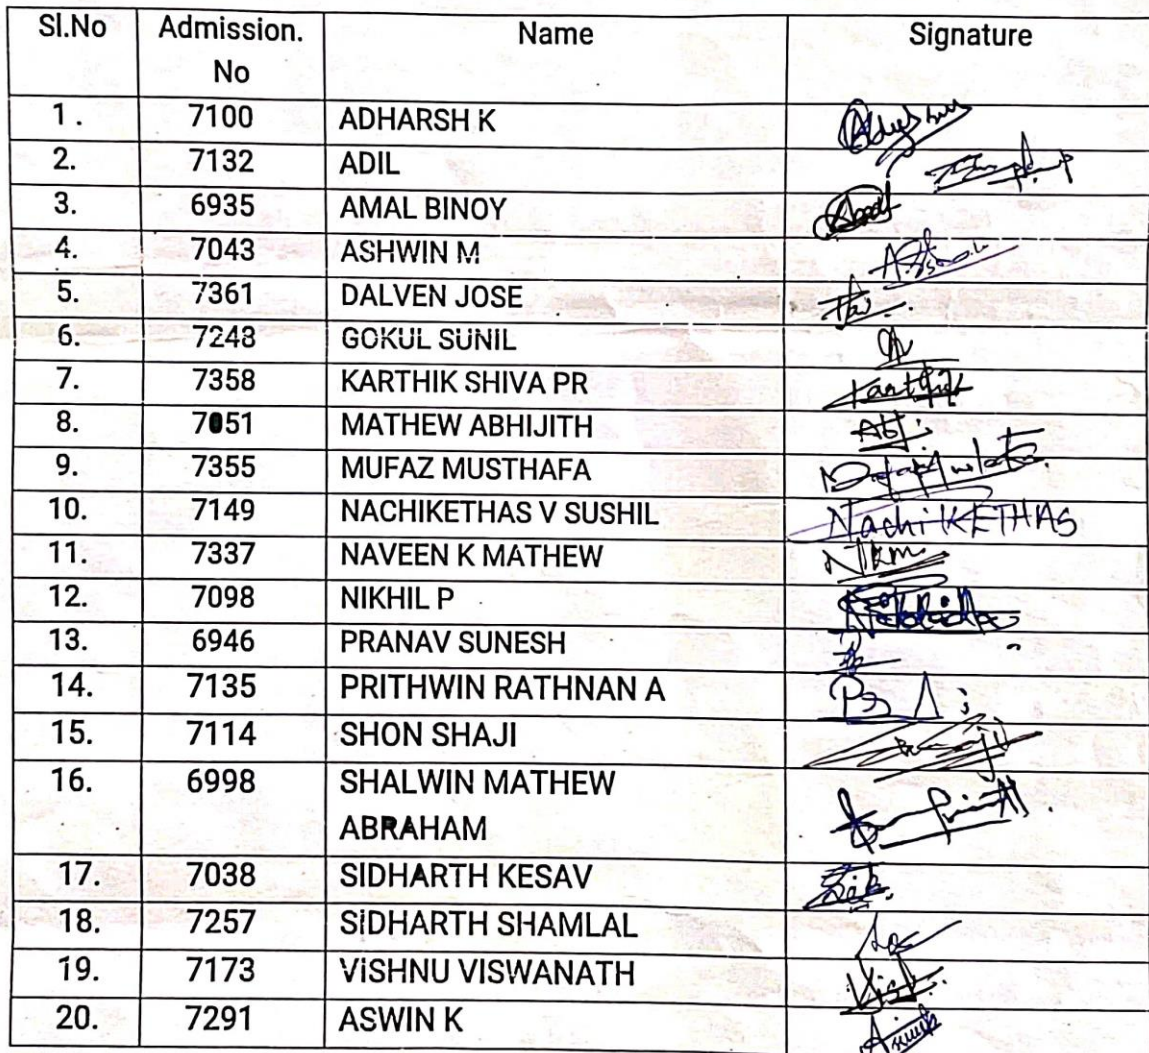 Sl.No Admission. No Name Signature
1. 7100 ADHARSH K
2. 7132 ADIL
3. 6935 AMAL BINOY
4. 7043 ASHWIN M
5. 7361 DALVEN JOSE
6. 7248 GOKUL SUNIL
7. 7358 KARTHIK SHIVA PR Karthik
8. 7051 MATHEW ABHIJITH
9. 7355 MUFAZ MUSTHAFA
10. 7149 NACHIKETHAS V SUSHIL NachiKETHAS
11. 7337 NAVEEN K MATHEW NKM
12. 7098 NIKHIL P
13. 6946 PRANAV SUNESH
14. 7135 PRITHWIN RATHNAN A
15. 7114 SHON SHAJI
16. 6998 SHALWIN MATHEW
ABRAHAM
17. 7038 SIDHARTH KESAV
18. 7257 SIDHARTH SHAMLAL
19. 7173 VISHNU VISWANATH
20. 7291 ASWIN K